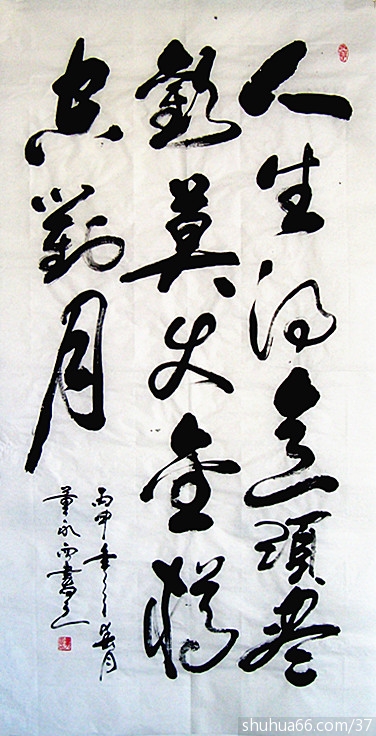 人生得意須盡
歡莫使金樽
空對月
丙申年之春月
董永西書之
shuhua66.com/37